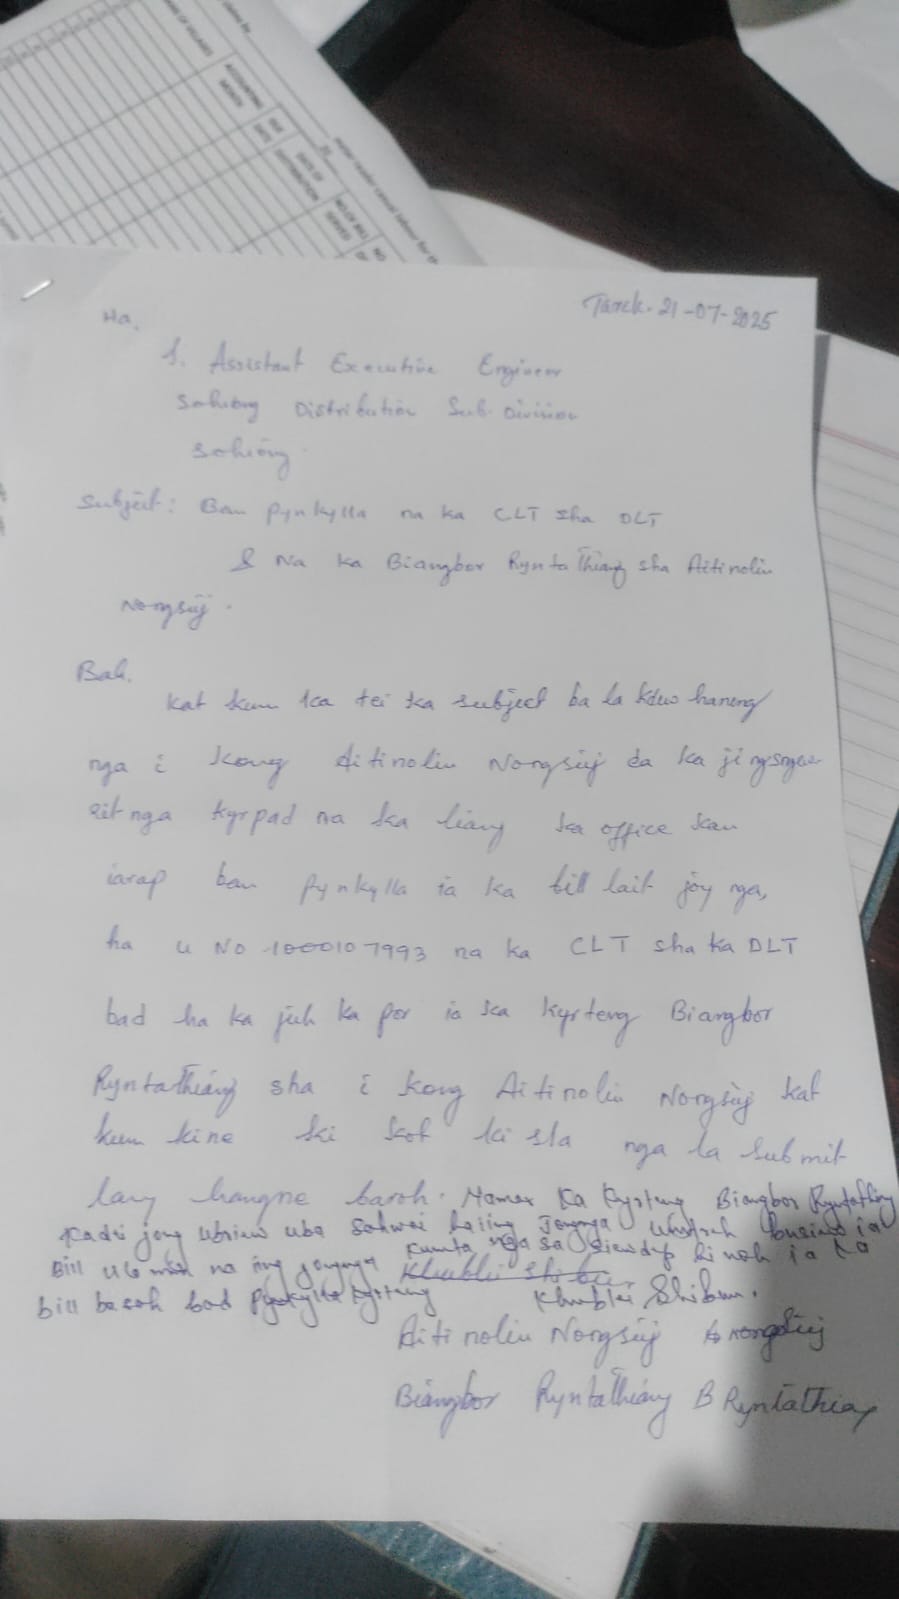 Tarek. 21-07-2025
Ha,
I. Assistant Executive Engineer
Sohiong Distribution Sub-Division
Sohiong.
Subject: Ban pynkylla na ka CLT sha DLT
& Na ka Biangbor RyntaThiang sha Aitinolin
Nongsiej.
Bah.
Kat kum ka tei ka subject ba la kdew haneng
nga i Kong Aitinolin Nongsiej da ka jingsngew
rit nga kyrpad na ka liang ka office kan
iarap ban pynkylla ia ka bill lait jong nga,
ha u No 1000107993 na ka CLT sha ka DLT
bad ha ka juh ka por ia ka kyrteng Biangbor
RyntaThiang sha i Kong Aitinolin Nongsiej kat
kum kine ki kot ki sla nga la submit
lang hangne baroh. Namar Ka Kyrteng Biangbor Ryntathiang
Kadei jong ubriew uba sahwai haiing jongnga
Bill na iing jongnga kumta nga sa siewdup ia
bill baroh bad pynkylla kyrteng Khublei Shibun.
Aitinolin Nongsiej A Nongsiej
Biangbor RyntaThiang B RyntaThiang
ACCOUNTING MONTH
DATE OF